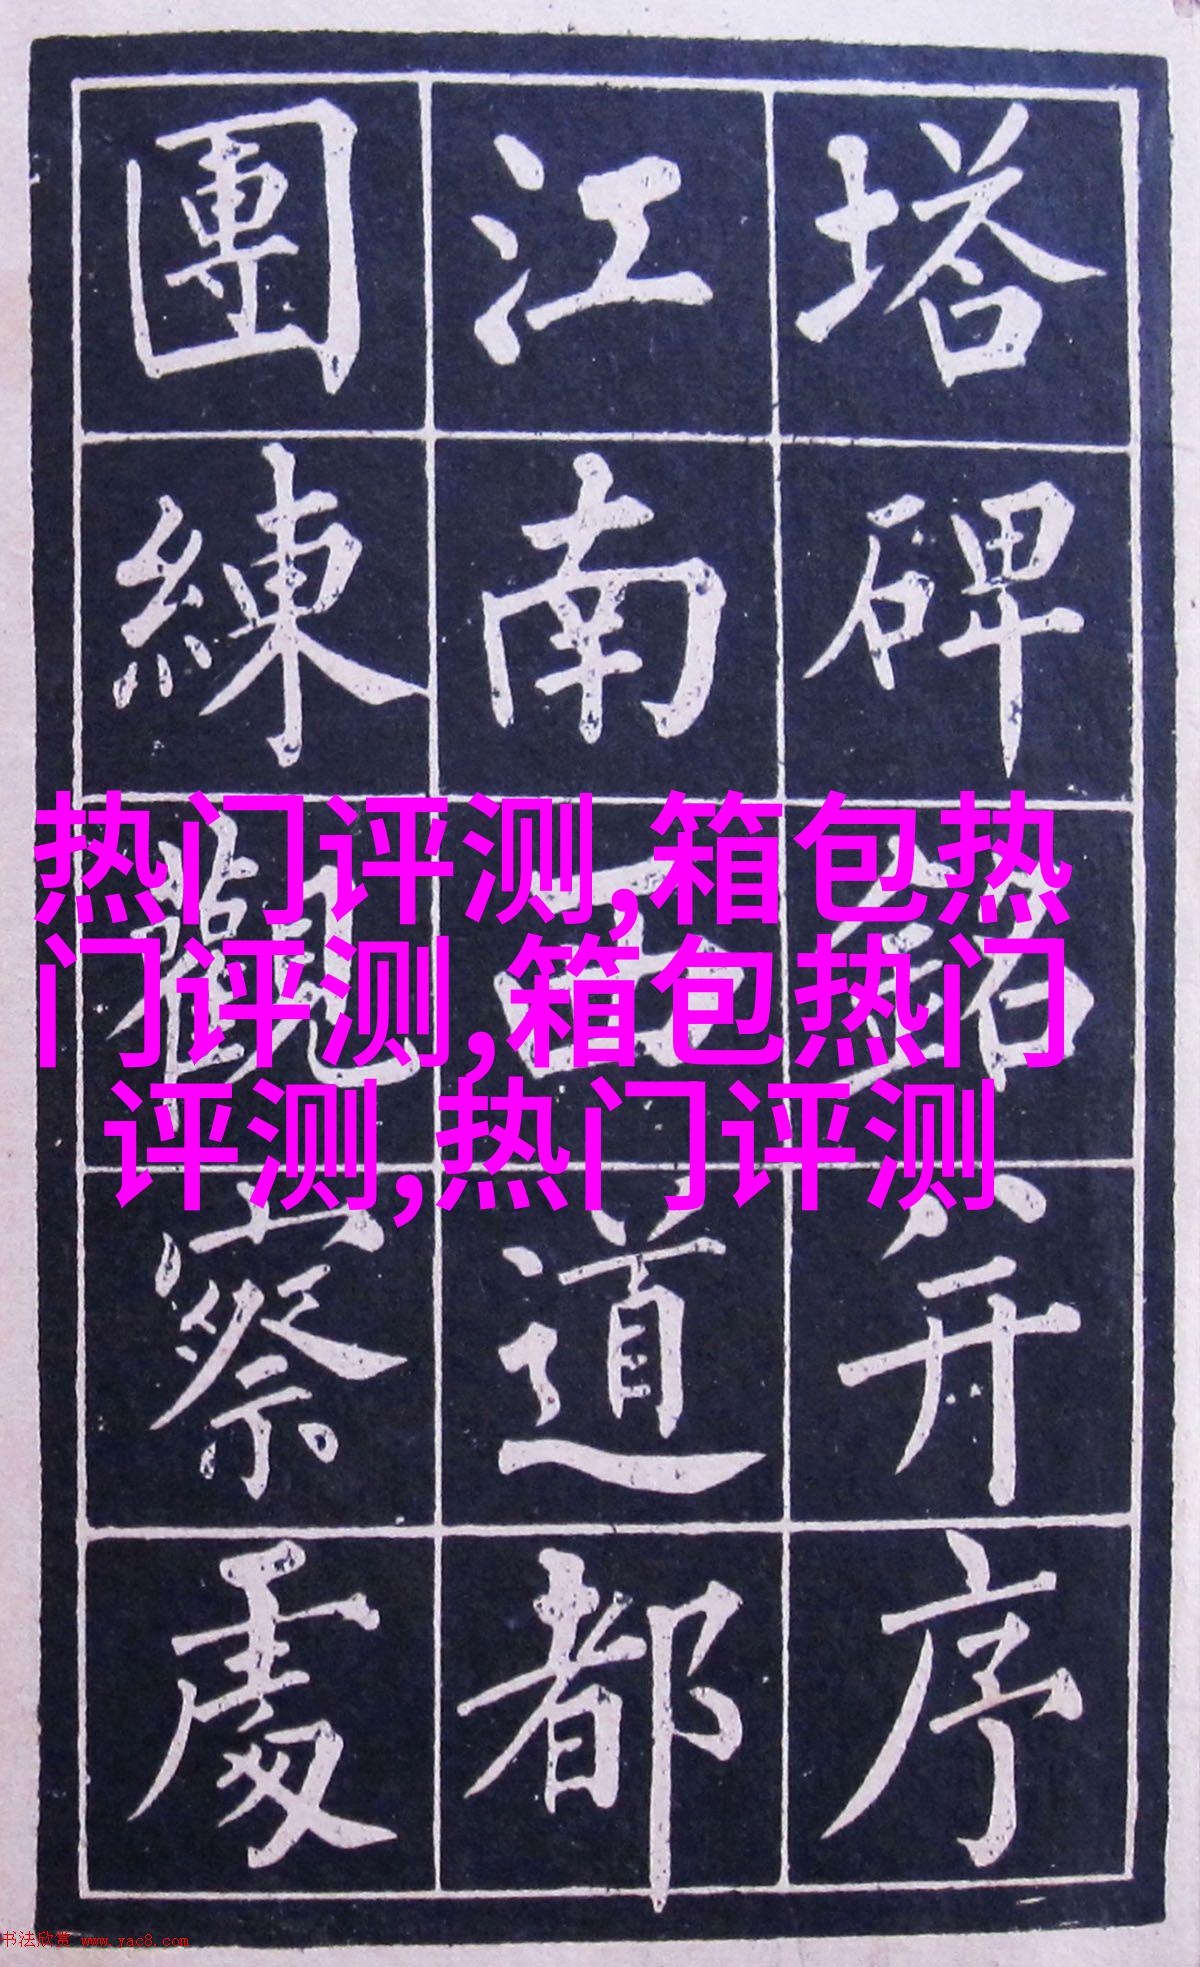 塔碑銘并序
江南西道都
團練觀察處
热门评测,箱包热
门评测,箱包热门
评测,热门评测
书法欣赏 www.yac8.com